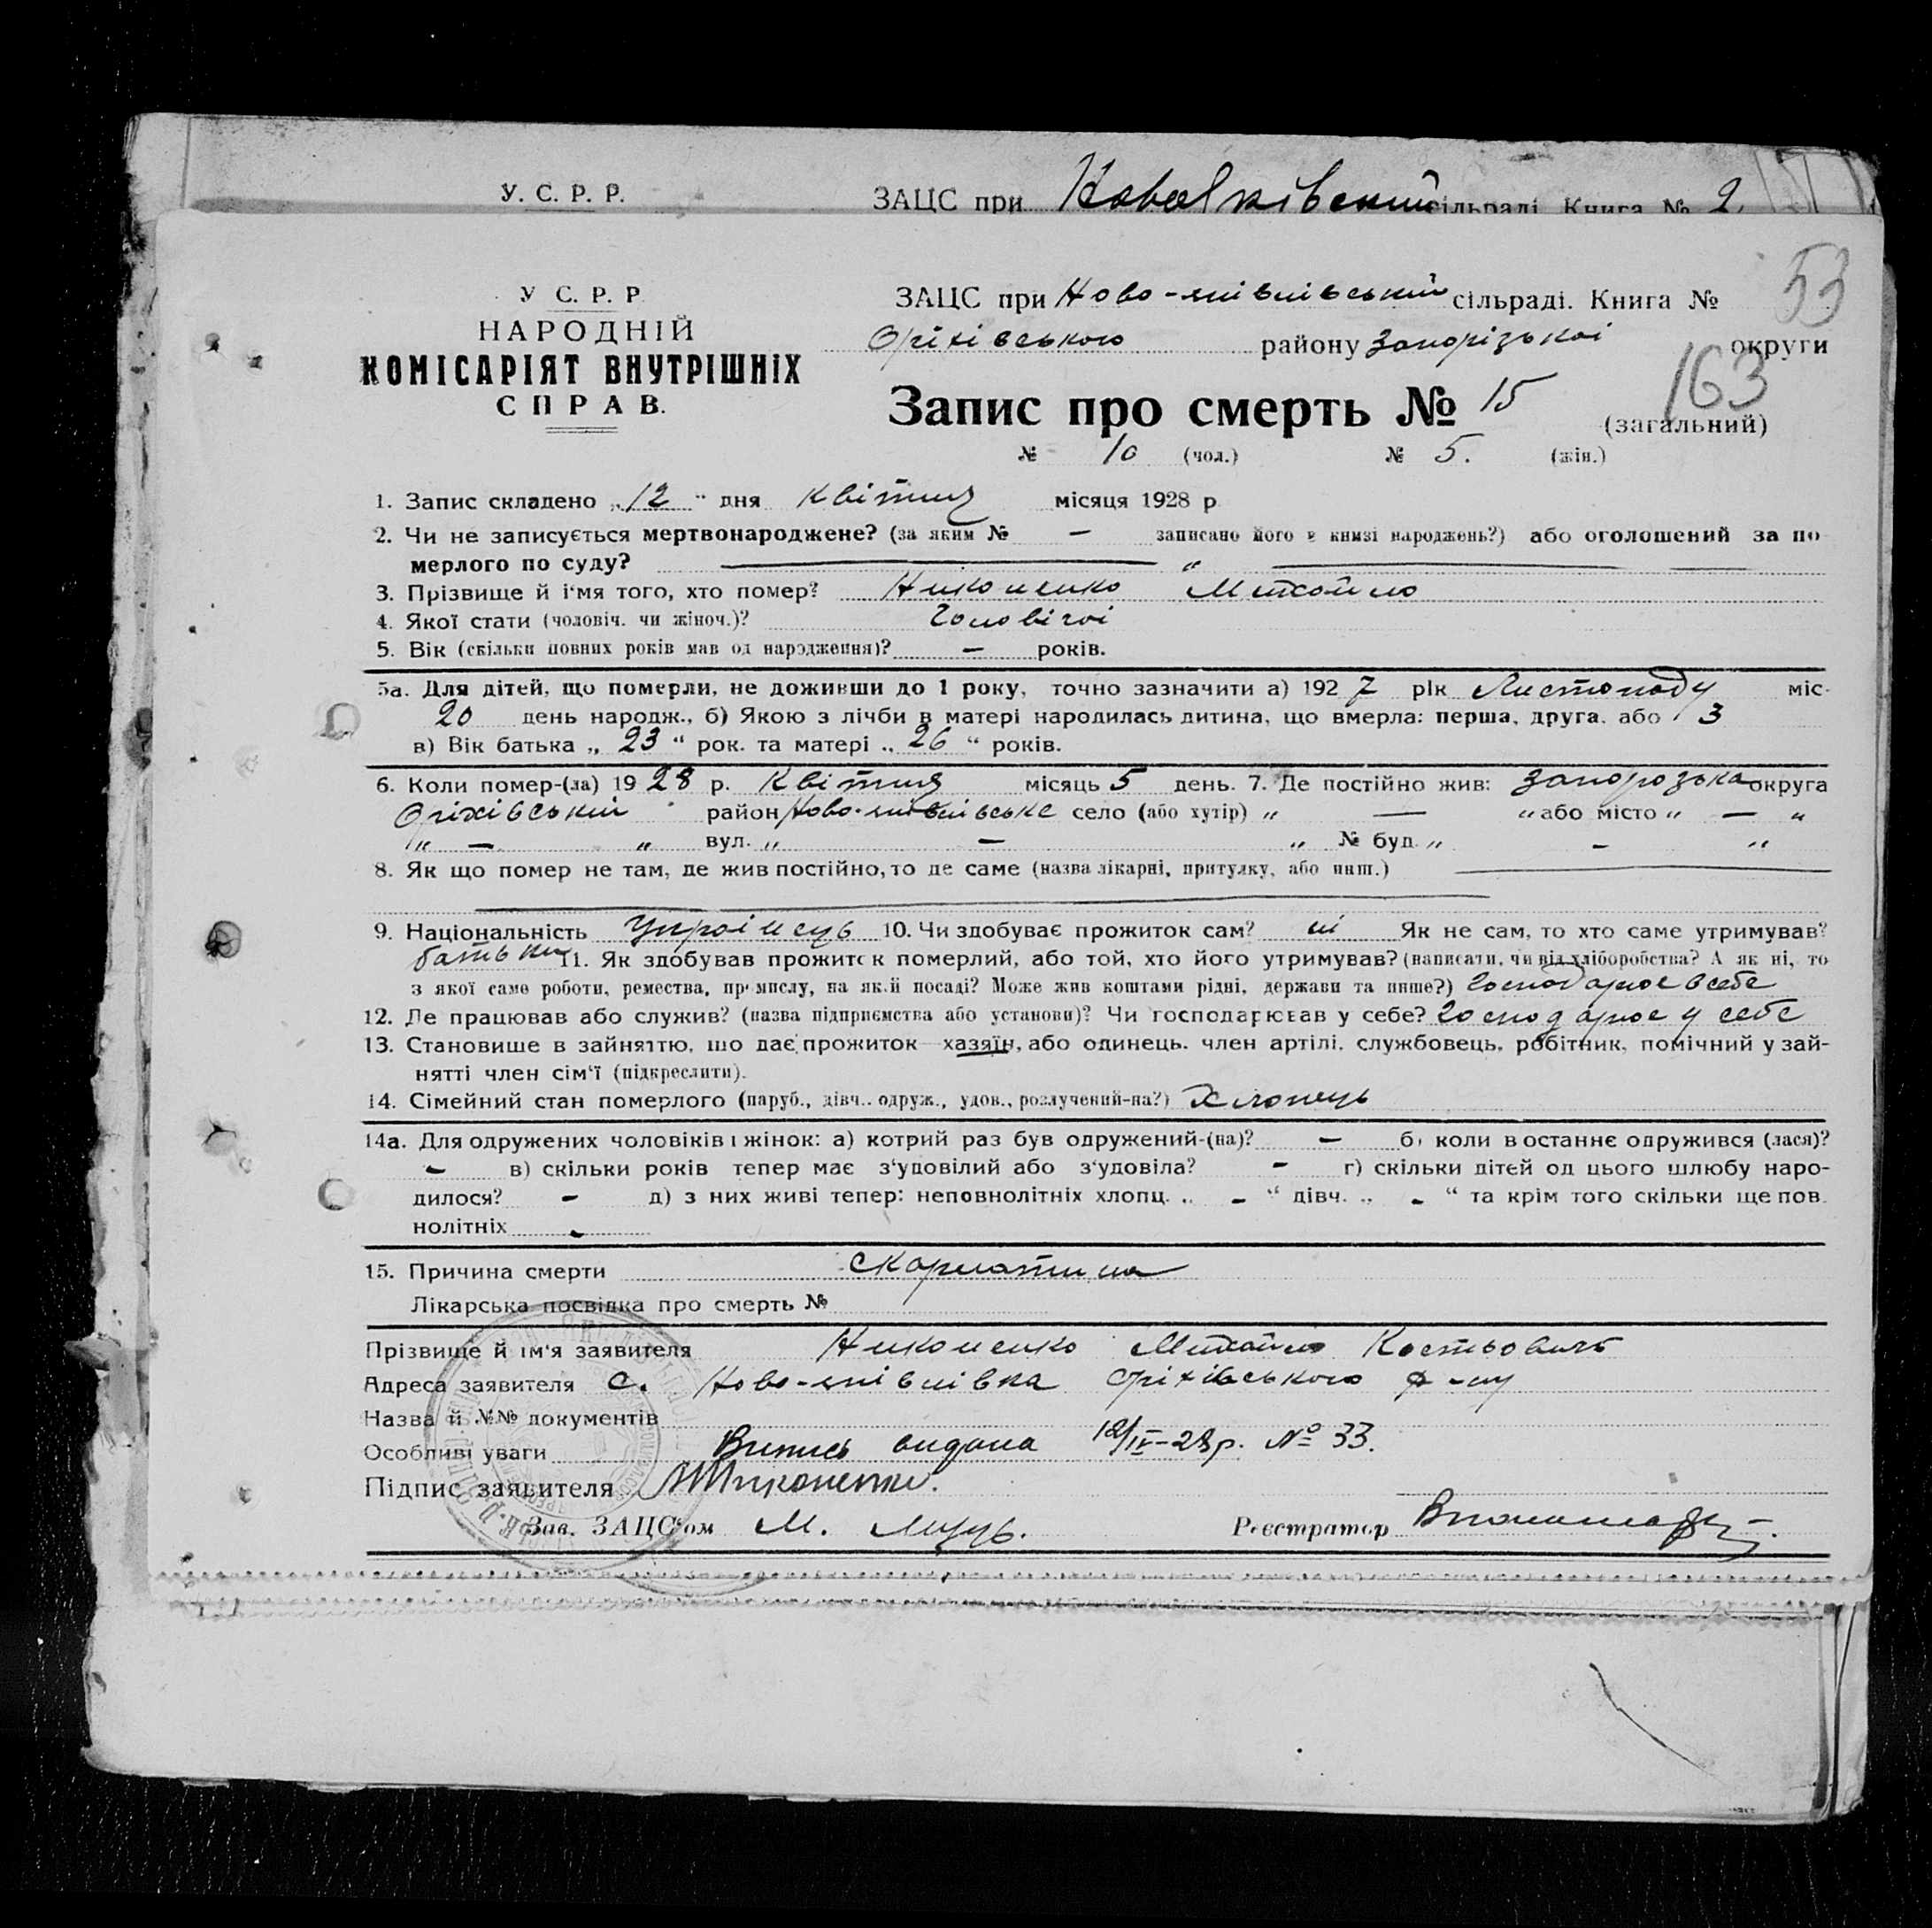 У. С. Р. Р.
ЗАЦС при сільраді. Книга № 2
53
У С. Р. Р
НАРОДНІЙ
КОМІСАРІЯТ ВНУТРІШНІХ
СПРАВ.
ЗАЦС при Ново-яківлівській сільраді. Книга №
Оріхівського району Запорізької округи
163
Запис про смерть № 15 (загальний)
№ 10 (чол.) № 5. (жін.)
1. Запис складено „12“ дня квітня місяця 1928 р
2. Чи не записується мертвонароджене? (за яким № — записано його в книзі народжень?) або оголошений за по
мерлого по суду? — „ —
3. Прізвище й і'мя того, хто помер? Никоненко Михайло
4. Якої стати (чоловіч. чи жіноч.)? Чоловічої
5. Вік (скільки повних років мав од народження)? — років.
5а. Для дітей, що померли, не доживши до 1 року, точно зазначити а) 1927 рік Листопаду міс-
20 день народж., б) Якою з лічби в матері народилась дитина, що вмерла: перша, друга. або 3
в) Вік батька „ 23 “ рок. та матері „ 26 “ років.
6. Коли помер-(ла) 1928 р. Квітня місяць 5 день. 7. Де постійно жив: Запорозька округа
Оріхівський район Ново-яківлівське село (або хутір) „ — “ або місто „ — “
„ — „ вул. „ — „ № буд. „ - “
8. Як що помер не там, де жив постійно, то де саме (назва лікарні, притулку, або инш.) —
9. Національність Украінець 10. Чи здобуває прожиток сам? ні Як не сам, то хто саме утримував?
батьки 11. Як здобував прожиток померлий, або той, хто його утримував? (написати, чи від хліборобства? А як ні, то
з якої саме роботи, ремества, промислу, на якій посаді? Може жив коштами рідні, держави та инше?) Господарює в себе
12. Де працював або служив? (назва підприємства або установи)? Чи господарював у себе? Господарює у себе
13. Становище в зайняттю, що дає прожиток хазяїн, або одинець. член артілі. службовець, робітник, помічний у зай-
нятті член сім'ї (підкреслити).
14. Сімейний стан померлого (паруб., дівч.. одруж., удов., розлучений-на?) Хлопець
14а. Для одружених чоловіків і жінок: а) котрий раз був одружений-(на)? — б) коли востаннє одружився (лася)?
- в) скільки років тепер має з'удовілий або з'удовіла? - г) скільки дітей од цього шлюбу наро-
дилося? - д) з них живі тепер: неповнолітніх хлопц. „ - “ дівч. „ - “ та крім того скільки ще пов
нолітніх -
15. Причина смерти скарлатина
Лікарська посвідка про смерть №
Прізвище й ім'я заявителя Никоненко Михайло Костьович
Адреса заявителя с. Ново-яківлівка Оріхівського р-ну
Назва й №№ документів
Особливі уваги Випись видана 12/IV-28р. № 33.
Підпис заявителя МНиконенко.
Зав. ЗАЦС'ом М.
Реєстратор